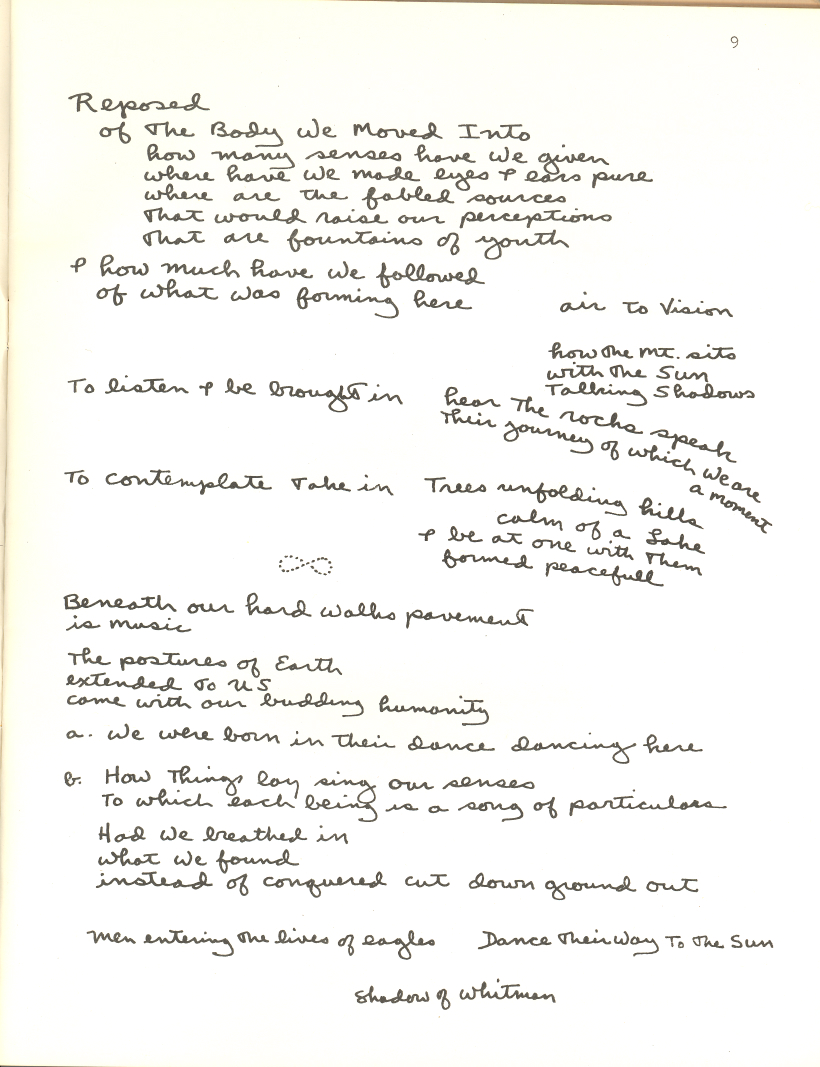 9
Reposed
of The Body We Moved Into
how many senses have we given
where have we made eyes & ears pure
where are the fabled sources
that would raise our perceptions
that are fountains of youth
& how much have we followed
of what was forming here
air to Vision
how the Mt. sits
with the Sun
Talking Shadows
To listen & be brought in
hear The rocks speak
Their journey of which we are
a moment
To contemplate Take in
Trees unfolding hills
calm of a Lake
& be at one with Them
formed peacefull
Beneath our hard walks pavement
is music
The postures of Earth
extended To US
come with our budding humanity
a. We were born in their dance dancing here
b. How Things lay sing our senses
To which each being is a song of particulars
Had we breathed in
what we found
instead of conquered cut down ground out
Men entering The lives of eagles
Dance Their Way To The Sun
Shadow of Whitman